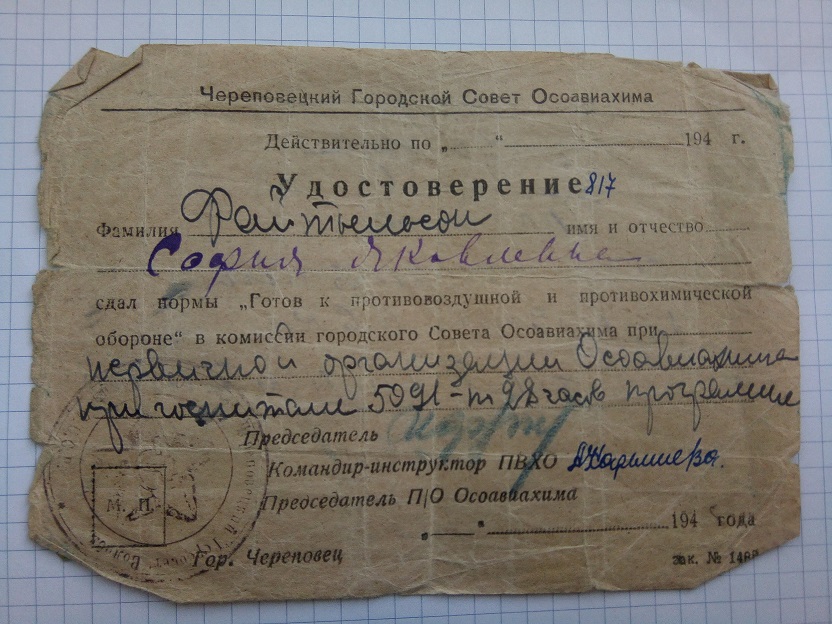 Череповецкий Городской Совет Осоавиахима
Действительно по „ “ 194 г.
Удостоверение 817
Фамилия имя и отчество
София Яковлевна
сдал нормы „Готов к противовоздушной и противохимической
обороне“ в комиссии городского Совета Осоавиахима при
первичной организации Осоавиахима
при госпитале 5091 часов программе
Председатель
Командир-инструктор ПВХО
Председатель П/О Осоавиахима
„ “ 194 года
М. П.
Гор. Череповец зак. №